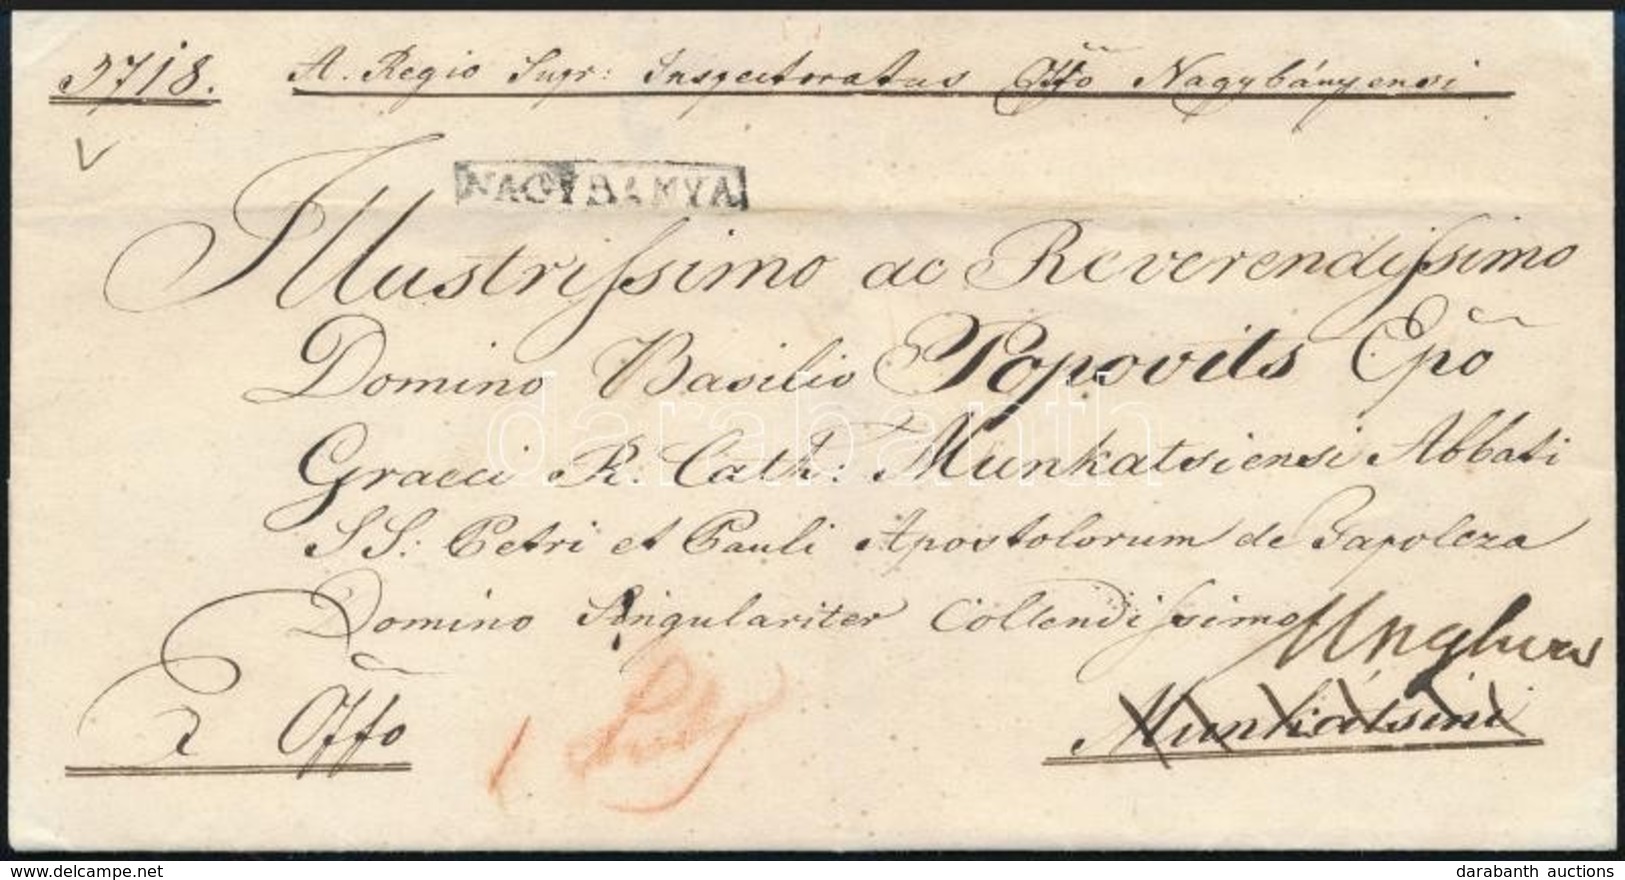 3718. A. Regio Supr: Inspectoratus Offõ Nagybányensi
NAGYBÁNYA
Illustrissimo ac Reverendissimo
Domino Basilio Popovits Epõ
Graeci R. Cath: Munkatsiensi Abbati
SS: Petri et Pauli Apostolorum de Tapolcza
Domino Singulariter Collendissimo
Unghvar
Ex Offõ
Munkátsini
darabanth
darabanth auctions